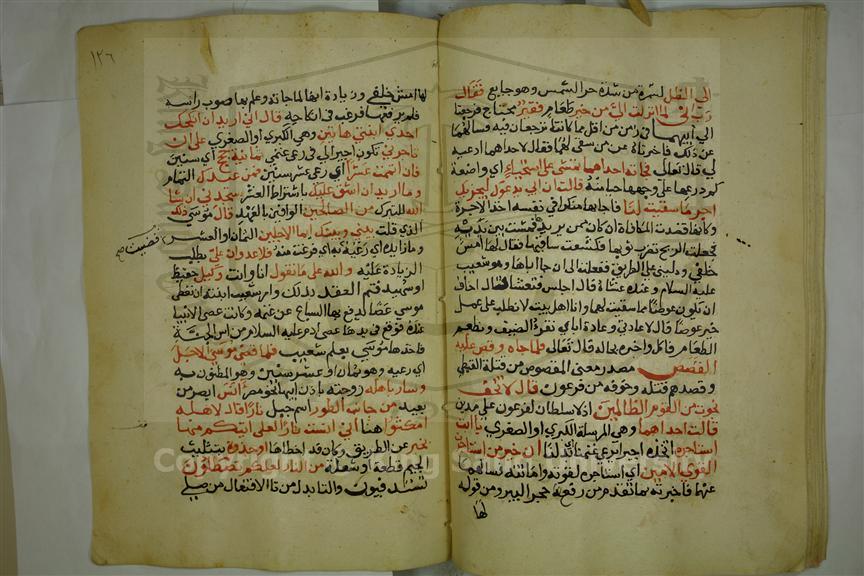 الى الظل لسمرة من شدة حر الشمس وهو جايع فقال
رب انى لما انزلت الي من خير طعام فقير محتاج فرجعتا
الى ابيهما فى زمن من اقل مما كانتا ترجعان فيه فسالهما
عن ذلك فاخبرتاه بمن سقى لهما فقال لاحداهما ادعيه
لى قال تعالى فجاته احداهما تمشى على استحياء اي واضعة
كم درعها على وجهها حيا منه قالت ان ابى يدعوك ليجزيك
اجر ما سقيت لنا فاجابها منكرا فى نفسه اخذ الاجرة
وكانها قصدت المكافاة ان كان ممن يريدها فمشت بين يديه
فجعلت الريح تضرب ثوبها فتكشف ساقيها فقال لها امشى
خلفى ودلينى على الطريق ففعلت الى ان جا اباها وهو شعيب
عليه السلام وعنده عشاء قال اجلس فتعش قال اخاف
ان يكون عوضا مما سقيت لهما وانا اهل بيت لا نطلب على عمل
خير عوضا قال لا عادتى وعادة اباى نقرى الضيف ونطعم
الطعام فاكل واخبره بحاله قال تعالى فلما جاه وقص عليه
القصص مصدر بمعنى المقصوص من قتله القبطى
وقصدهم قتله وخوفه من فرعون قال لا تخف
نجوت من القوم الظالمين اذ لا سلطان لفرعون على مدين
قالت احداهما وهى المرسلة الكبرى او الصغرى يا ابت
استاجره اتخذه اجيرا يرعى غنمنا بدلنا ان خير من استاجرت
القوى الامين اى استاجره لقوته وامانته فسالها
عنهما فاخبرته بما تقدم من رفعه حجر البير ومن قوله
لها
١٢٦
لها امشى خلفى وزيادة انها لما جاته وعلم بها صوب راسه
فلم يرفعه فرغب فى انكاحه قال انى اريد ان انكحك
احدى ابنتى هاتين وهى الكبرى او الصغرى على ان
تاجرنى تكون اجيرا لى فى رعى غنمى ثمانية حجج اي سنين
فان اتممت عشرا اي رعى عشر سنين فمن عندك التمام
وما اريد ان اشق عليك باشتراط العشر ستجدنى ان شا
الله للتبرك من الصالحين الوافين بالعهد قال موسى ذلك
الذى قلت بينى وبينك ايما الاجلين الثمان او العشر
وما زايدة اي رعيه قضيت به اي فرغت منه فلا عدوان على بطلب
الزيادة عليه والله على ما نقول انا وانت وكيل حفيظ
او شهيد فتم العقد بذلك وامر شعيب ابنته ان تعطى
موسى عصا يدفع بها السباع عن غنمه وكانت عصى الانبيا
عنده فوقع فى يدها عصى ادم عليه السلام من اس الجنة
فاخذها موسى بعلم شعيب فلما قضى موسى الاجل
اي رعيه وهو ثمان او عشر سنين وهو المظنون به
وسار باهله زوجته باذن ابيها نحو مصر انس ابصر من
بعيد من جانب الطور اسم جبل نارا قال لاهله
امكثوا هنا انى انست نارا لعلى اتيكم منها
بخبر عن الطريق وكان قد اخطاها او جذوة بتثليث
الجيم قطعة وشعلة من النار لعلكم تصطلون
تستدفيون والتا بدل من تا الافتعال من صلى